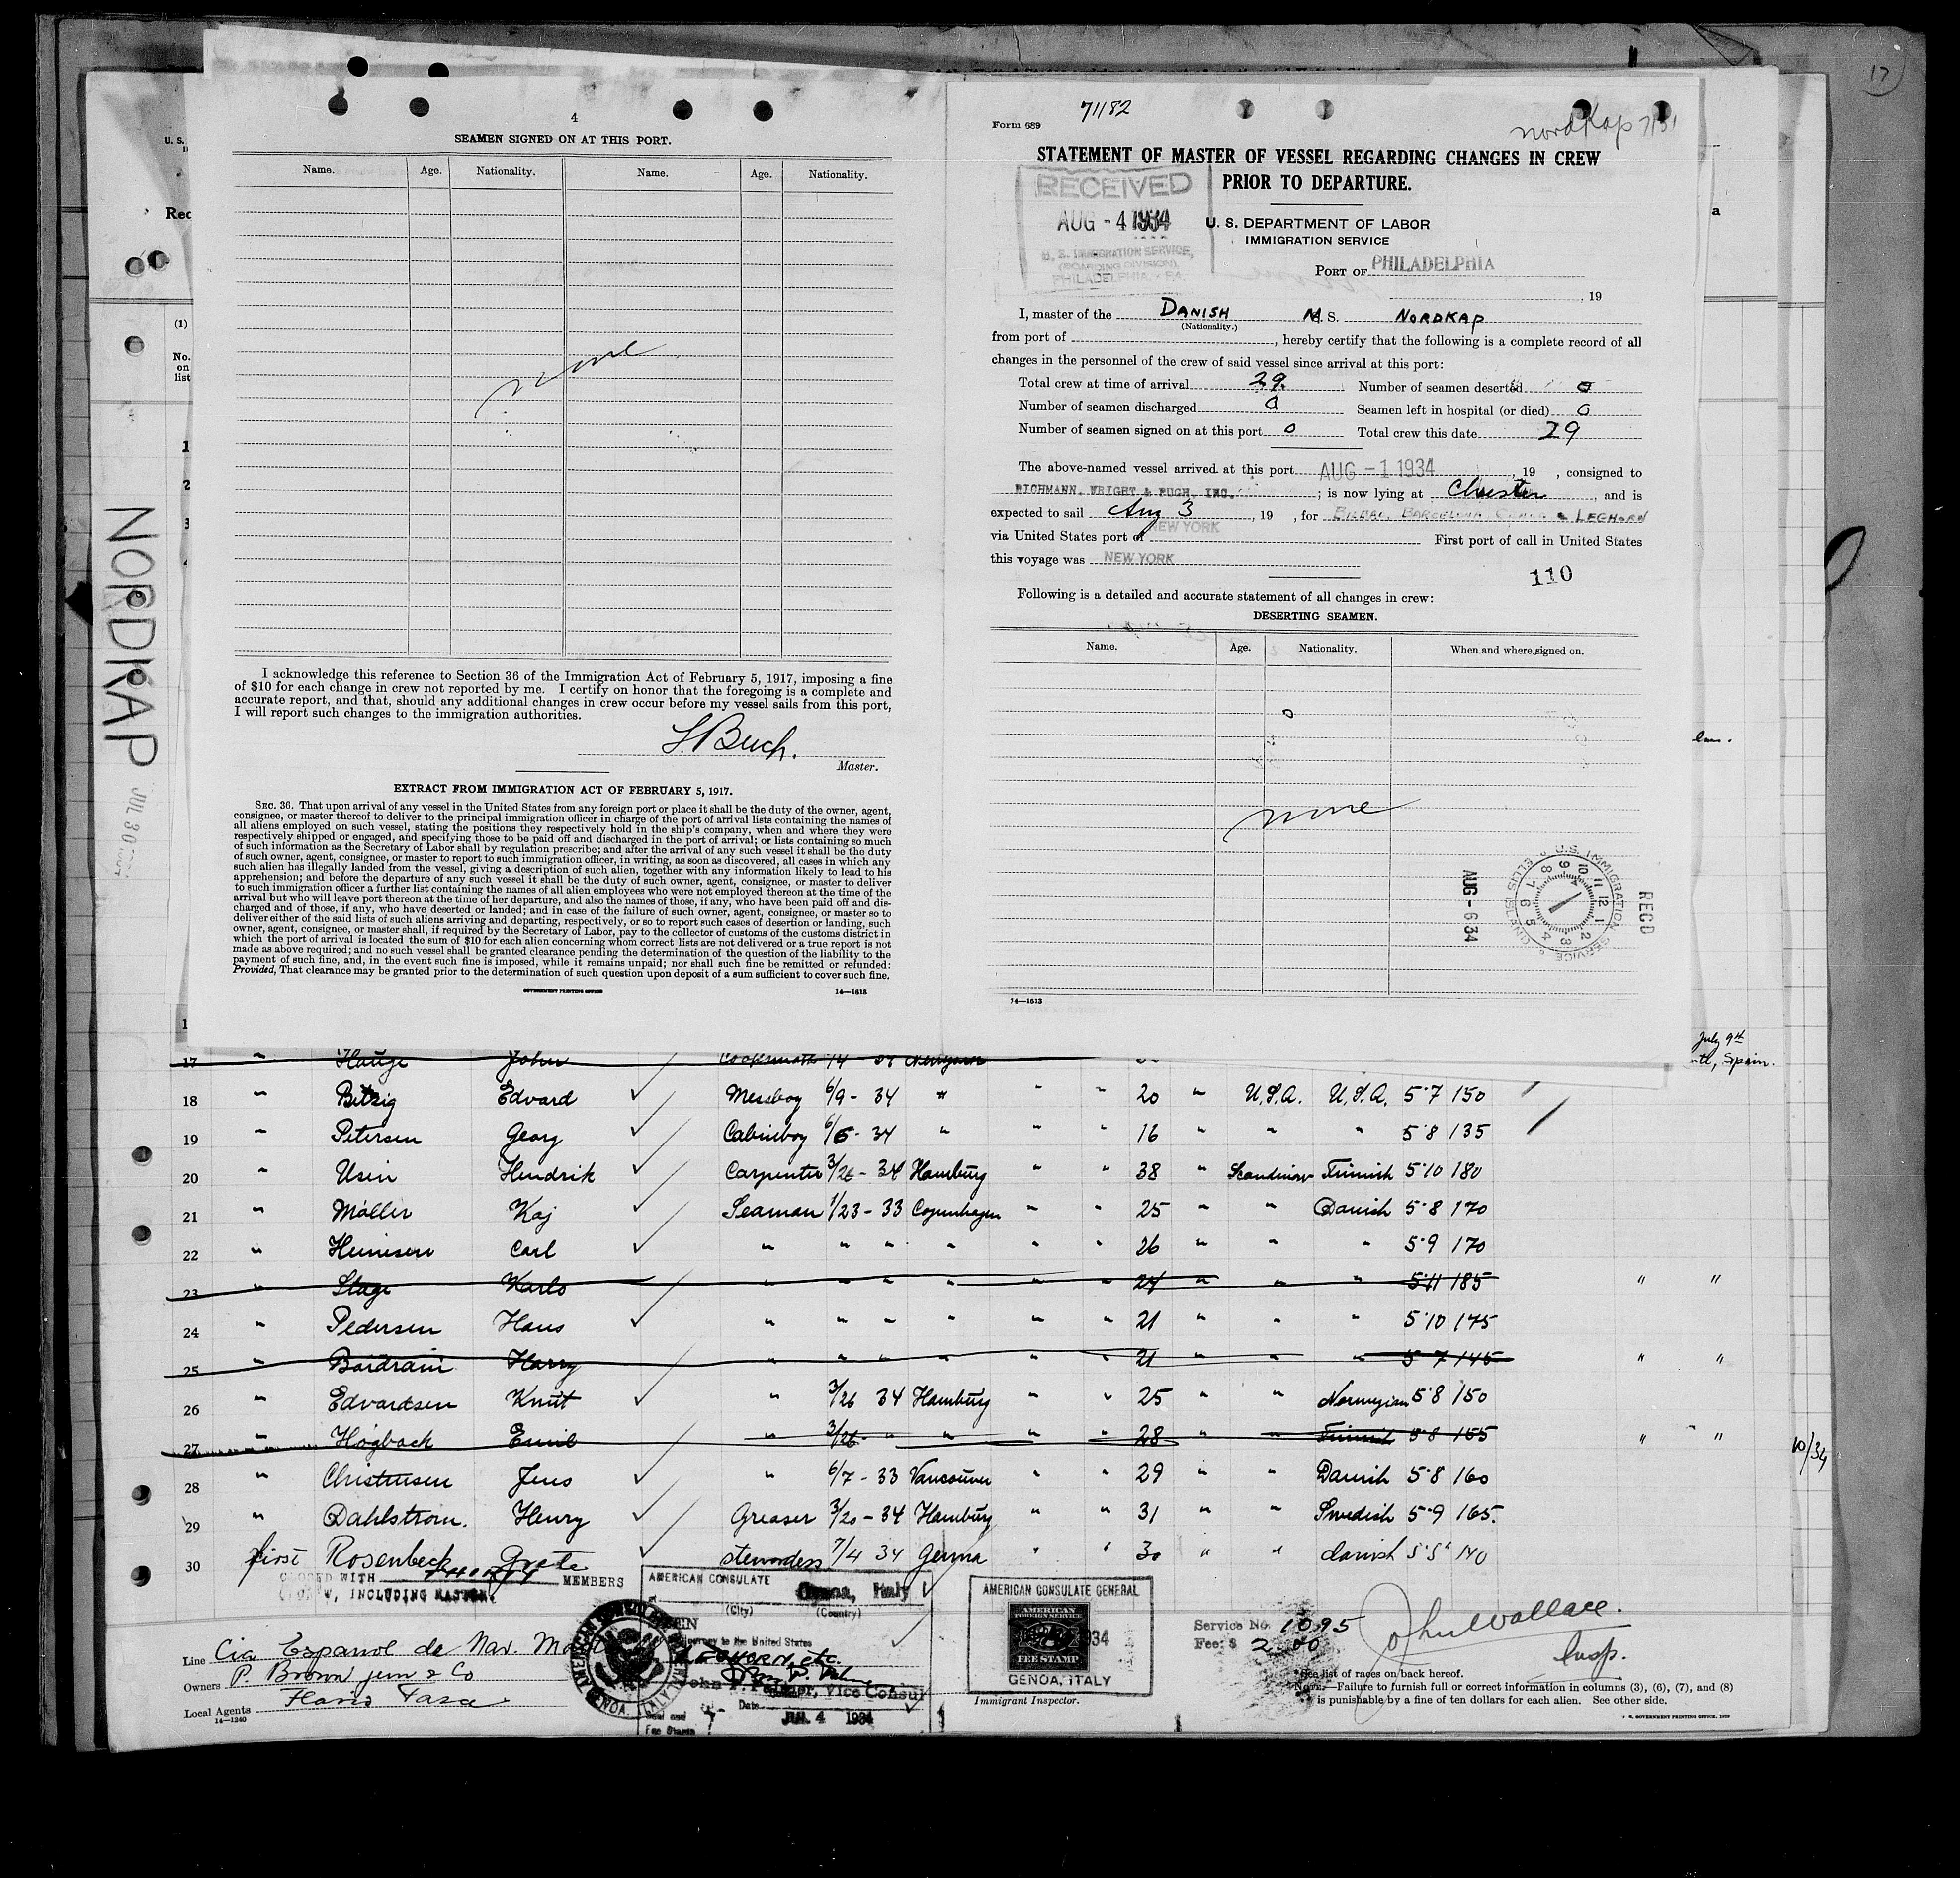 17
U. S.
Rec
a
(1)
No.
on
list
1
2
3
NORDKAP
JUL 30
4
SEAMEN SIGNED ON AT THIS PORT.
Name. Age. Nationality. Name. Age. Nationality.
none
I acknowledge this reference to Section 36 of the Immigration Act of February 5, 1917, imposing a fine
of $10 for each change in crew not reported by me. I certify on honor that the foregoing is a complete and
accurate report, and that, should any additional changes in crew occur before my vessel sails from this port,
I will report such changes to the immigration authorities.
Master.
EXTRACT FROM IMMIGRATION ACT OF FEBRUARY 5, 1917.
SEC. 36. That upon arrival of any vessel in the United States from any foreign port or place it shall be the duty of the owner, agent,
consignee, or master thereof to deliver to the principal immigration officer in charge of the port of arrival lists containing the names of
all aliens employed on such vessel, stating the positions they respectively hold in the ship's company, when and where they were
respectively shipped or engaged, and specifying those to be paid off and discharged in the port of arrival; or lists containing so much
of such information as the Secretary of Labor shall by regulation prescribe; and after the arrival of any such vessel it shall be the duty
of such owner, agent, consignee, or master to report to such immigration officer, in writing, as soon as discovered, all cases in which any
such alien has illegally landed from the vessel, giving a description of such alien, together with any information likely to lead to his
apprehension; and before the departure of any such vessel it shall be the duty of such owner, agent, consignee, or master to deliver
to such immigration officer a further list containing the names of all alien employees who were not employed thereon at the time of the
arrival but who will leave port thereon at the time of her departure, and also the names of those, if any, who have been paid off and dis-
charged and of those, if any, who have deserted or landed; and in case of the failure of such owner, agent, consignee, or master so to
deliver either of the said lists of such aliens arriving and departing, respectively, or so to report such cases of desertion or landing, such
owner, agent, consignee, or master shall, if required by the Secretary of Labor, pay to the collector of customs of the customs district in
which the port of arrival is located the sum of $10 for each alien concerning whom correct lists are not delivered or a true report is not
made as above required; and no such vessel shall be granted clearance pending the determination of the question of the liability to the
payment of such fine, and, in the event such fine is imposed, while it remains unpaid; nor shall such fine be remitted or refunded:
Provided, That clearance may be granted prior to the determination of such question upon deposit of a sum sufficient to cover such fine.
GOVERNMENT PRINTING OFFICE 14—1613
Form 689 71182 nordKap 7/31
STATEMENT OF MASTER OF VESSEL REGARDING CHANGES IN CREW
PRIOR TO DEPARTURE.
RECEIVED
AUG - 4 1934
U. S. IMMIGRATION SERVICE,
(BOARDING DIVISION),
PHILADELPHIA - PA.
U. S. DEPARTMENT OF LABOR
IMMIGRATION SERVICE
PORT OF PHILADELPHIA
, 19
I, master of the DANISH M. S. NORDKAP
(Nationality.)
from port of , hereby certify that the following is a complete record of all
changes in the personnel of the crew of said vessel since arrival at this port:
Total crew at time of arrival 29. Number of seamen deserted 0
Number of seamen discharged 0 Seamen left in hospital (or died) 0
Number of seamen signed on at this port 0 Total crew this date 29
The above-named vessel arrived at this port AUG - 1 1934 , 19 , consigned to
RICHMANN, WRIGHT & PUGH, INC. ; is now lying at Chester , and is
expected to sail Aug 3 , 19 , for BILBAO, BARCELONA GENOA & LEGHORN
via United States port of NEW YORK First port of call in United States
this voyage was NEW YORK
110
Following is a detailed and accurate statement of all changes in crew:
DESERTING SEAMEN.
Name. Age. Nationality. When and where signed on.
0
none
U.S. IMMIGRATION SERVICE
REC'D
AUG - 6 34
14—1613
July 9th
Spain.
17 " Hauge John
18 " Bitzig Edvard Messboy 6/9 - 34 " " " 20 " U.S.A. U.S.A. 5'7 150
19 " Petersen Georg Cabinboy 6/5 - 34 " " " 16 " " " 5'8 135
20 " Usin Hendrik Carpenter 3/26 - 34 Hamburg " " 38 " Scandinav Finnish 5'10 180
21 " Möller Kaj Seaman 1/23 - 33 Copenhagen " " 25 " " Danish 5'8 170
22 " Heinisen Carl " " " " " " 26 " " " 5'9 170
23 " Stage Karlo " " " " " " 24 " " " 5'11 185 " "
24 " Pedersen Hans " " " " " " 21 " " " 5'10 175
25 " Harry " " " " " " 21 " " " 5'7 145 " "
26 " Edvardsen Knut " 3/26 34 Hamburg " " 25 " " Norwegian 5'8 150
27 " Högback Emil " 3/26 " " " " 28 " " Finnish 5'8 155 " "
28 " Christensen Jens " 6/7 - 33 Vancouver " " 29 " " Danish 5'8 160
29 " Dahlstrom. Henry Greaser 3/20 - 34 Hamburg " " 31 " " Swedish 5'9 165.
30 first Rosenbeck Grete stewardess 7/4 34 Genua " " 30 " " danish 5'5" 140
10/34
CLOSED WITH MEMBERS
CREW, INCLUDING MASTER.
AMERICAN CONSULATE Genoa, Italy
(City) (Country)
SEEN
journey to the United States
LEGHORN, etc.
John P. Palmer, Vice Consul
Date JUL 4 1934
Seal and
Fee Stamps
AMERICAN CONSULATE GENERAL
AMERICAN
FOREIGN SERVICE
1934
FEE STAMP
GENOA, ITALY
Immigrant Inspector.
Service No. 1095
Fee: $ 2.00
John Wallace.
Insp.
Line Cia Español de Nav. Mar
Owners P. Brown jun & Co
Local Agents
14—1240
*See list of races on back hereof.
NOTE.—Failure to furnish full or correct information in columns (3), (6), (7), and (8)
is punishable by a fine of ten dollars for each alien. See other side.
U. S. GOVERNMENT PRINTING OFFICE